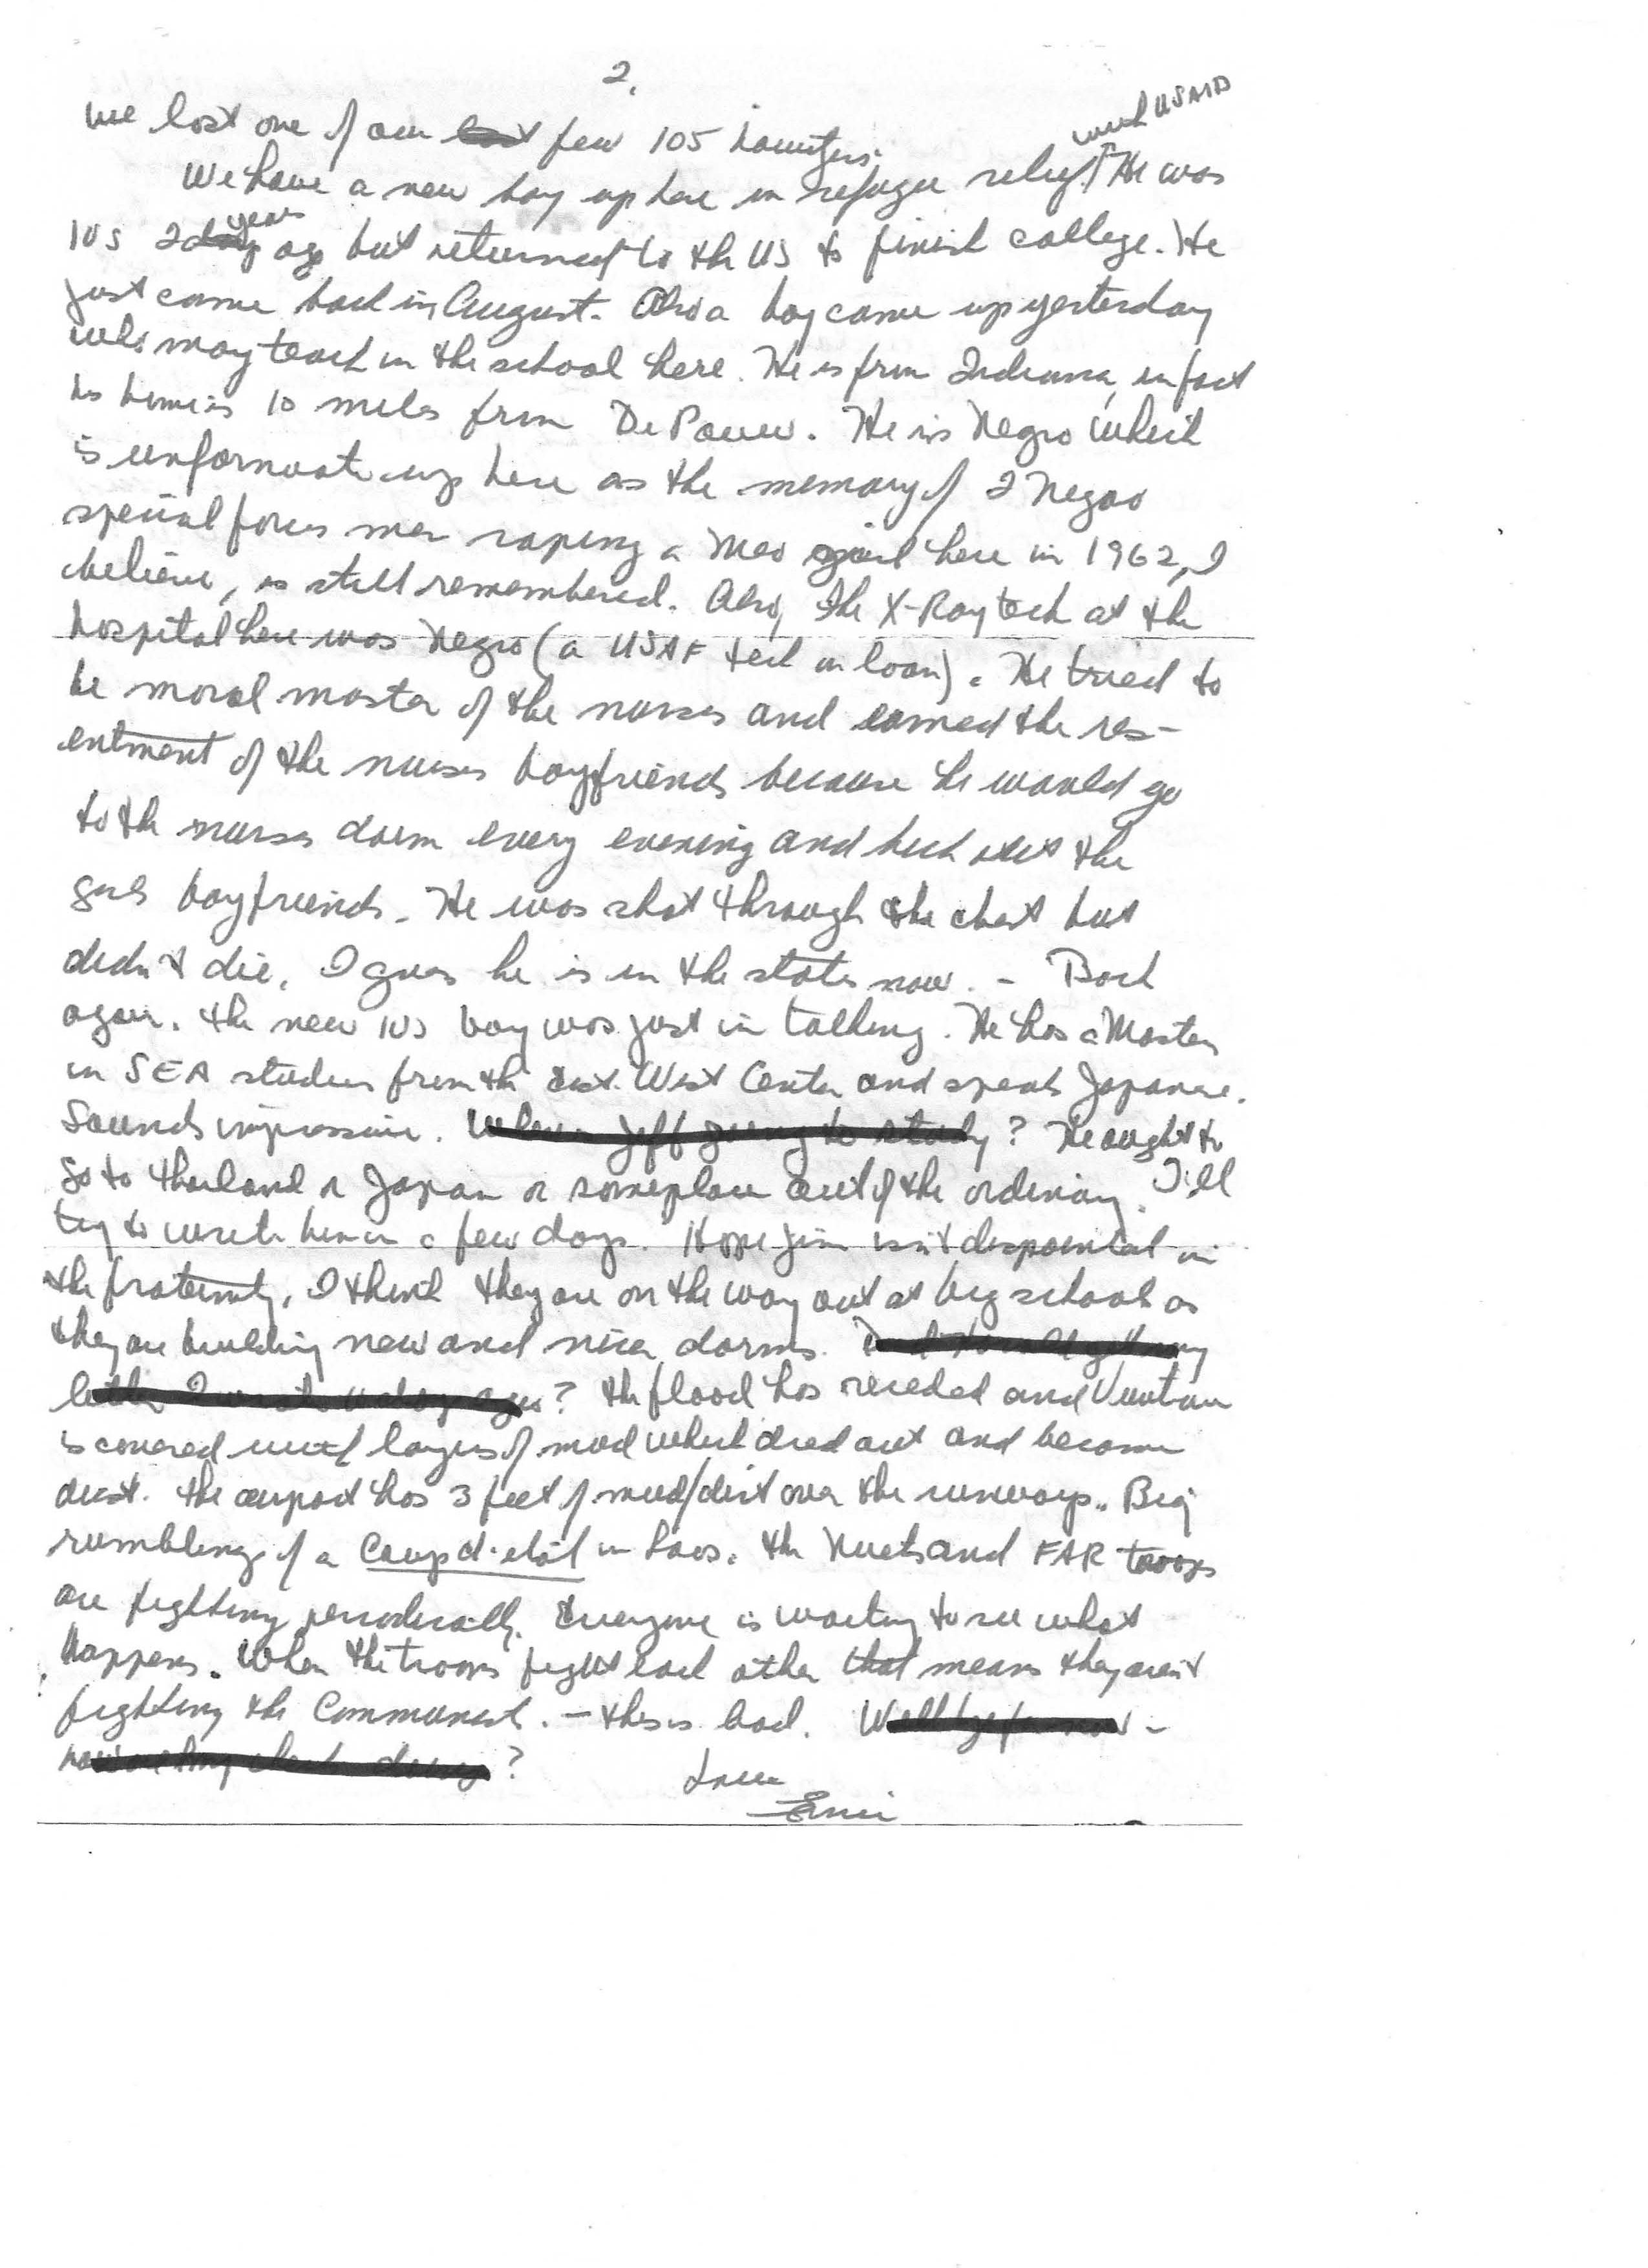 2.
we lost one of our few 105 howitzers.
with USAID
We have a new boy up here in refugee relief. He was
IVS 2 years ago but returned to the US to finish college. He
just came back in August. Also a boy came up yesterday
who may teach in the school here. He is from Indiana, in fact
his home is 10 miles from DePauw. He is Negro which
is unfornuate up here as the memory of 2 Negro
special forces men raping a Meo girl here in 1962, I
believe, is still remembered. Also, the X-Ray tech at the
hospital here was Negro (a USAF tech on loan). He tried to
be moral master of the nurses and earned the res-
entment of the nurses boyfriends because he would go
to the nurses dorm every evening and kick out the
girls boyfriends. He was shot through the chest but
didn't die. I guess he is in the states now. - Back
again. the new IVS boy was just in talking. He has a Masters
in SEA studies from the East-West Center and speaks Japanese.
Sounds impressive. Where is Jeff going to study? He ought to
go to Thailand or Japan or someplace out of the ordinary. I'll
try to write him in a few days. Hope Jim isn't dispointed in
the fraternity. I think they are on the way out at big schools as
they are building new and nicer dorms.
? the flood has receded and Vientiane
is covered with layers of mud which dried out and become
dust. the airport has 3 feet of mud/dirt over the runways. Big
rumblings of a Coup d'etat in Laos. the Neuts and FAR troops
are fighting periodically. Everyone is waiting to see what
happens. When the troops fight each other that means they aren't
fighting the Communist. - this is bad. Well bye for now -
?
Love
Ernie